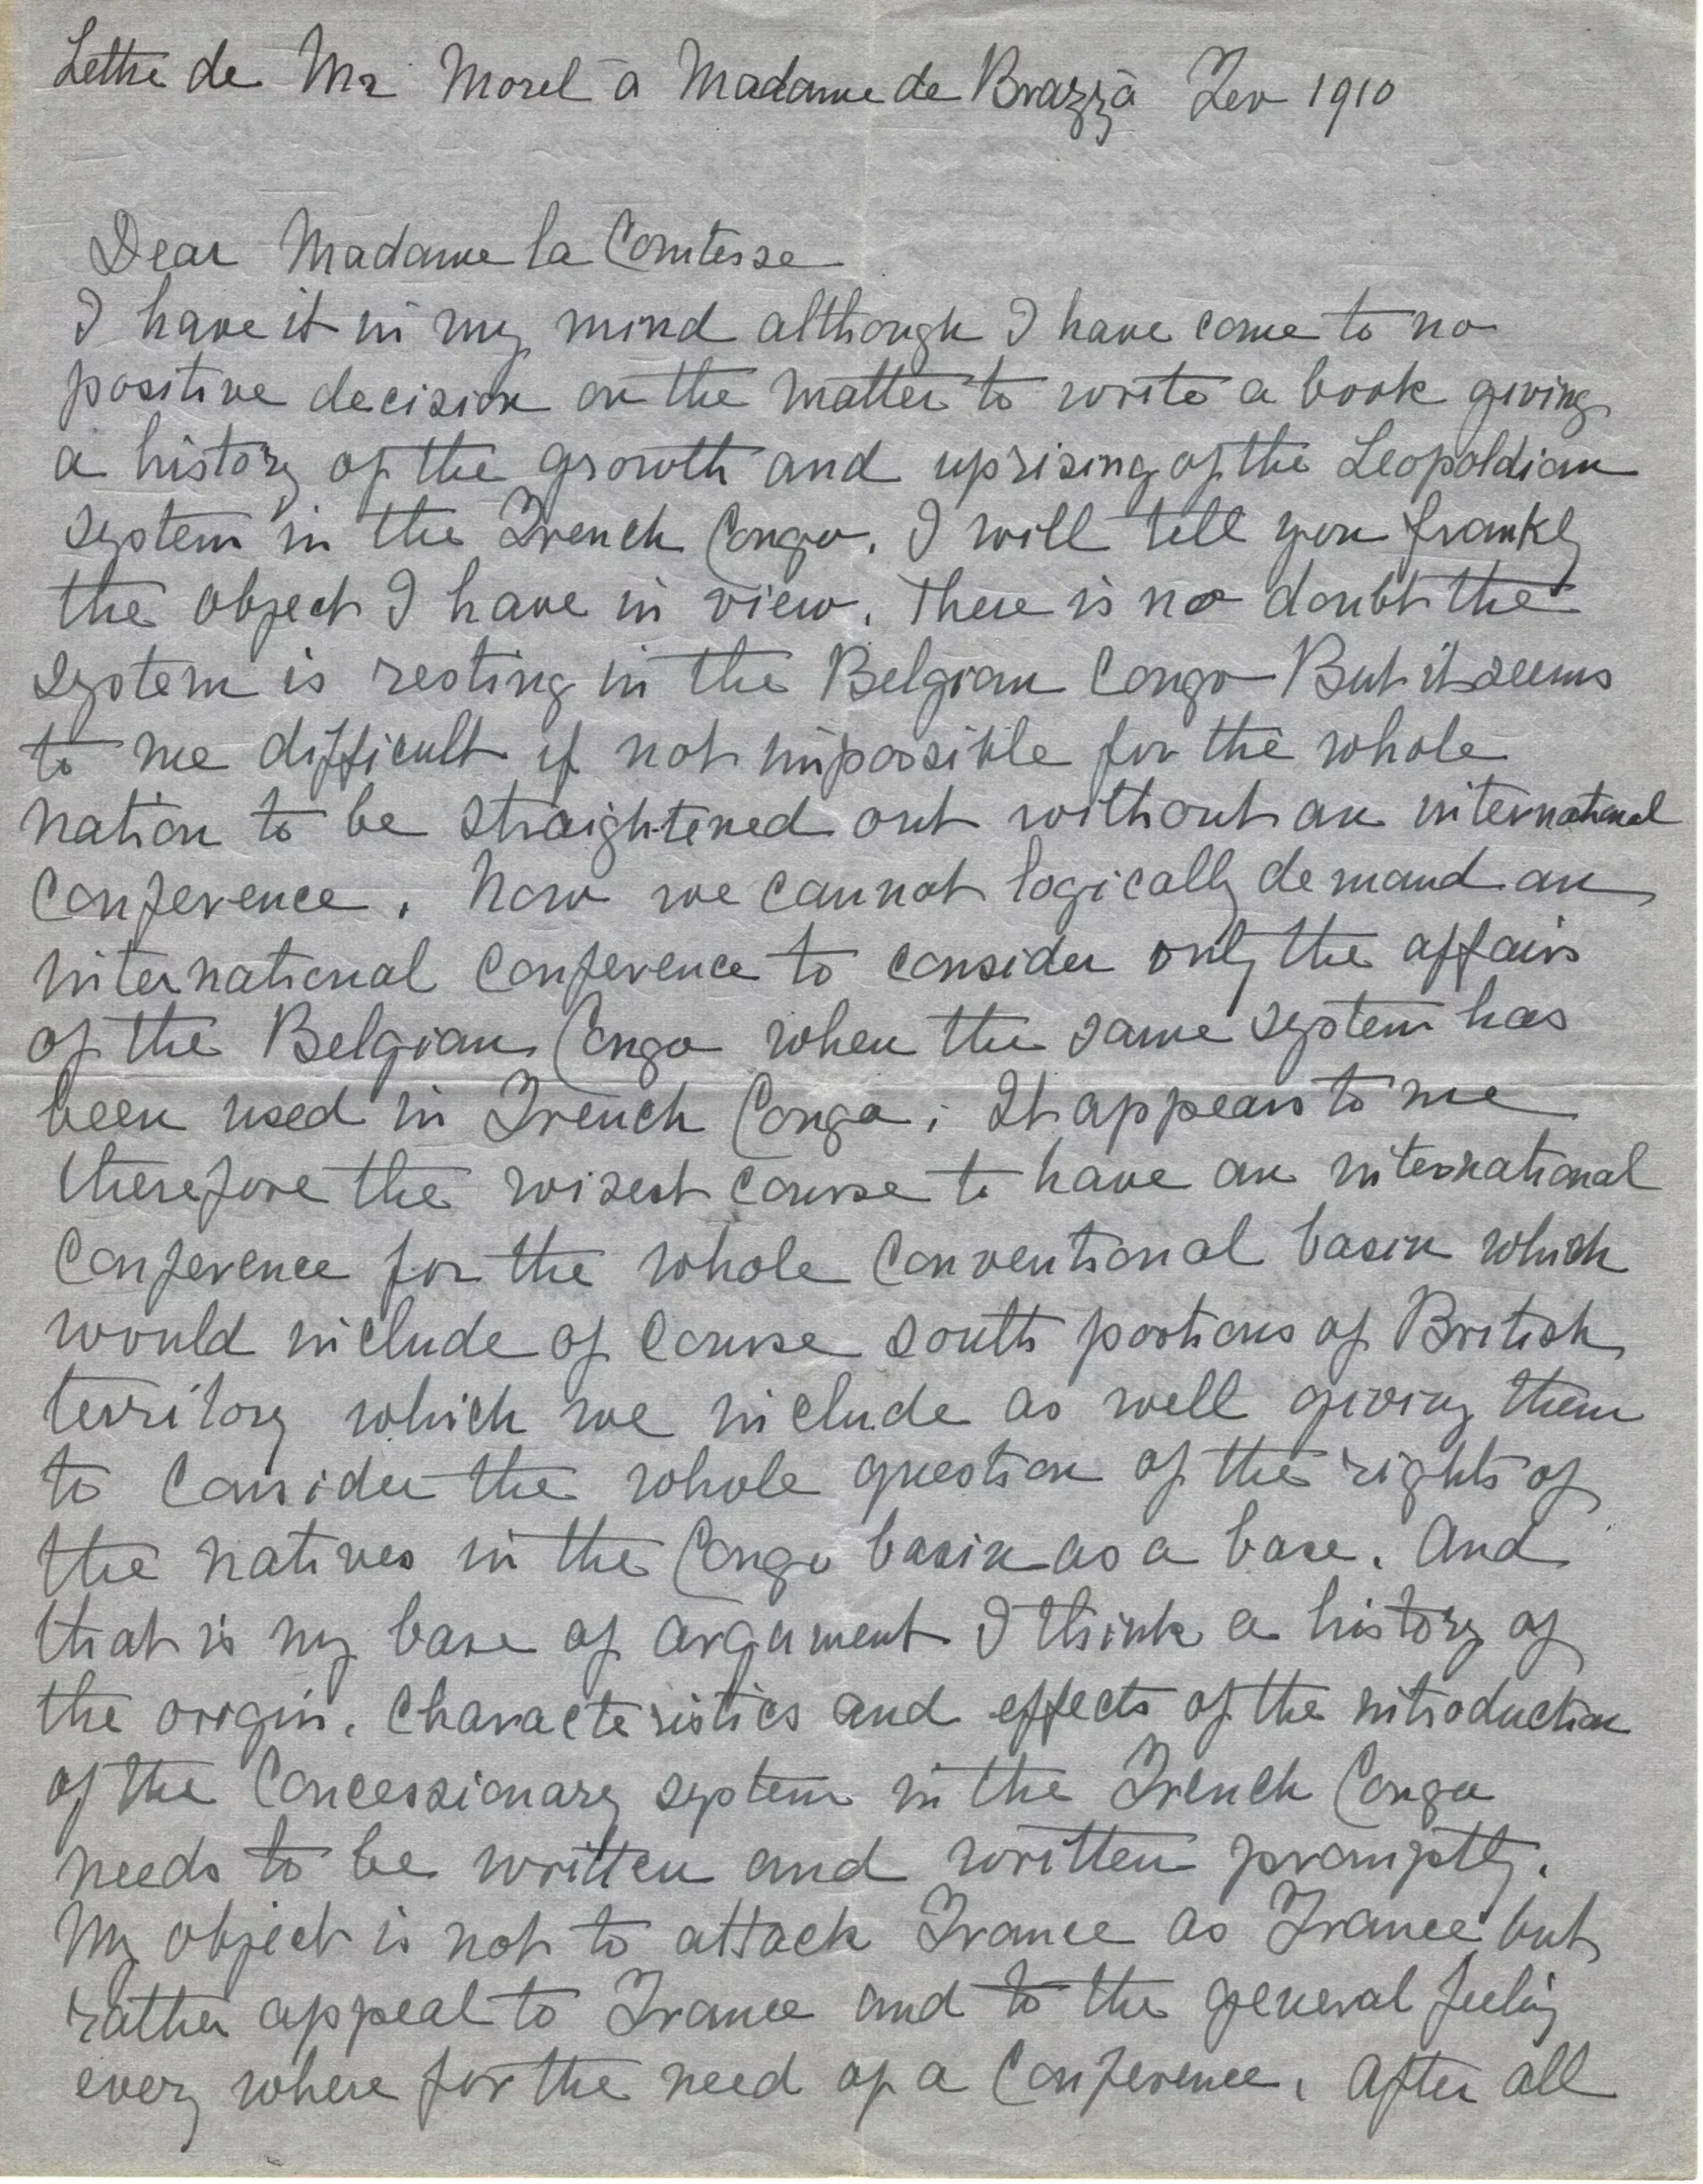 Lettre de Mr Morel à Madame de Brazzà Fev 1910
Dear Madame la Comtesse
I have it in my mind although I have come to no
positive decision on the matter to write a book giving
a history of the growth and uprising of the Leopoldian
system in the French Congo. I will tell you frankly
the object I have in view. There is no doubt the
system is resting in the Belgian Congo But it seems
to me difficult if not impossible for the whole
nation to be straightened out without an international
Conference. Now we cannot logically demand an
international Conference to consider only the affairs
of the Belgian Congo when the same system has
been used in French Congo. It appears to me
therefore the wisest course to have an international
Conference for the whole Conventional basin which
would include of course south portions of British
territory which we include as well giving them
to consider the whole question of the rights of
the natives in the Congo basin as a base. And
that is my base of argument I think a history of
the origin. Characteristics and effects of the introduction
of the Concessionary system in the French Congo
needs to be written and written promptly.
My object is not to attack France as France but
rather appeal to France and to the general feeling
every where for the need of a Conference. After all